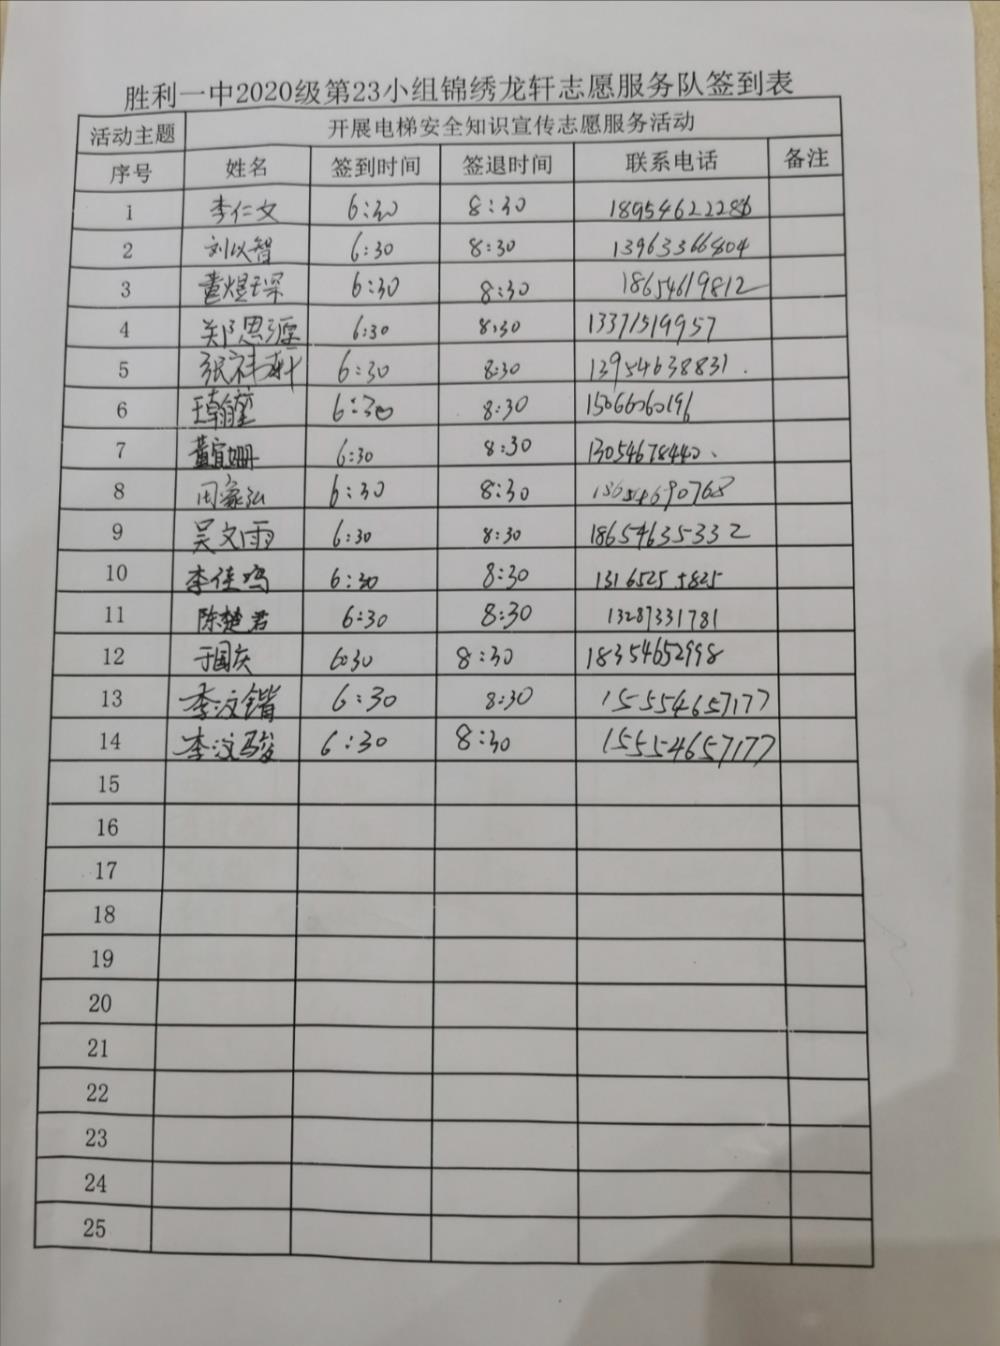 胜利一中2020级第23小组锦绣龙轩志愿服务队签到表
活动主题 开展电梯安全知识宣传志愿服务活动
序号 姓名 签到时间 签退时间 联系电话 备注
1 李仁文 6:30 8:30 18954622286
2 刘以智 6:30 8:30 13963366804
3 董煜琛 6:30 8:30 18654619812
4 郑思源 6:30 8:30 13371519957
5 张祎轩 6:30 8:30 13954638831.
6 6:30 8:30 15066060196
7 黄宜姗 6:30 8:30 13054678440、
8 周家弘 6:30 8:30 13654690768
9 吴文雨 6:30 8:30 18654635332
10 李佳鸣 6:30 8:30 13165255825
11 陈楚君 6:30 8:30 13287331781
12 于国庆 6:30 8:30 18354652998
13 李汶锴 6:30 8:30 15554657177
14 李汶骏 6:30 8:30 15554657177
15
16
17
18
19
20
21
22
23
24
25